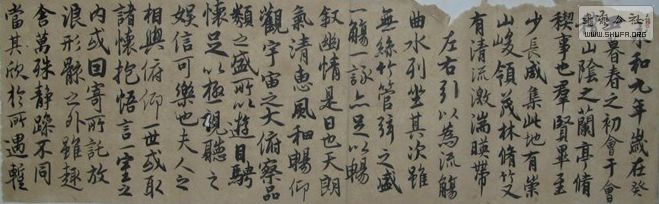 和九年歲在癸
暮春之初會于會
山陰之蘭亭脩
稧事也羣賢畢至
少長咸集此地有崇
山峻領茂林脩竹又
有清流激湍暎帶
左右引以為流觴
曲水列坐其次雖
無絲竹管弦之盛
一觴一詠亦足以暢
敘幽情是日也天朗
氣清惠風和暢仰
觀宇宙之大俯察品
類之盛所以遊目騁
懷足以極視聽之
娛信可樂也夫人之
相與俯仰一世或取
諸懷抱悟言一室之
內或因寄所託放
浪形骸之外雖趣
舍萬殊靜躁不同
當其欣於所遇蹔
公社
WWW.SHUFA.ORG